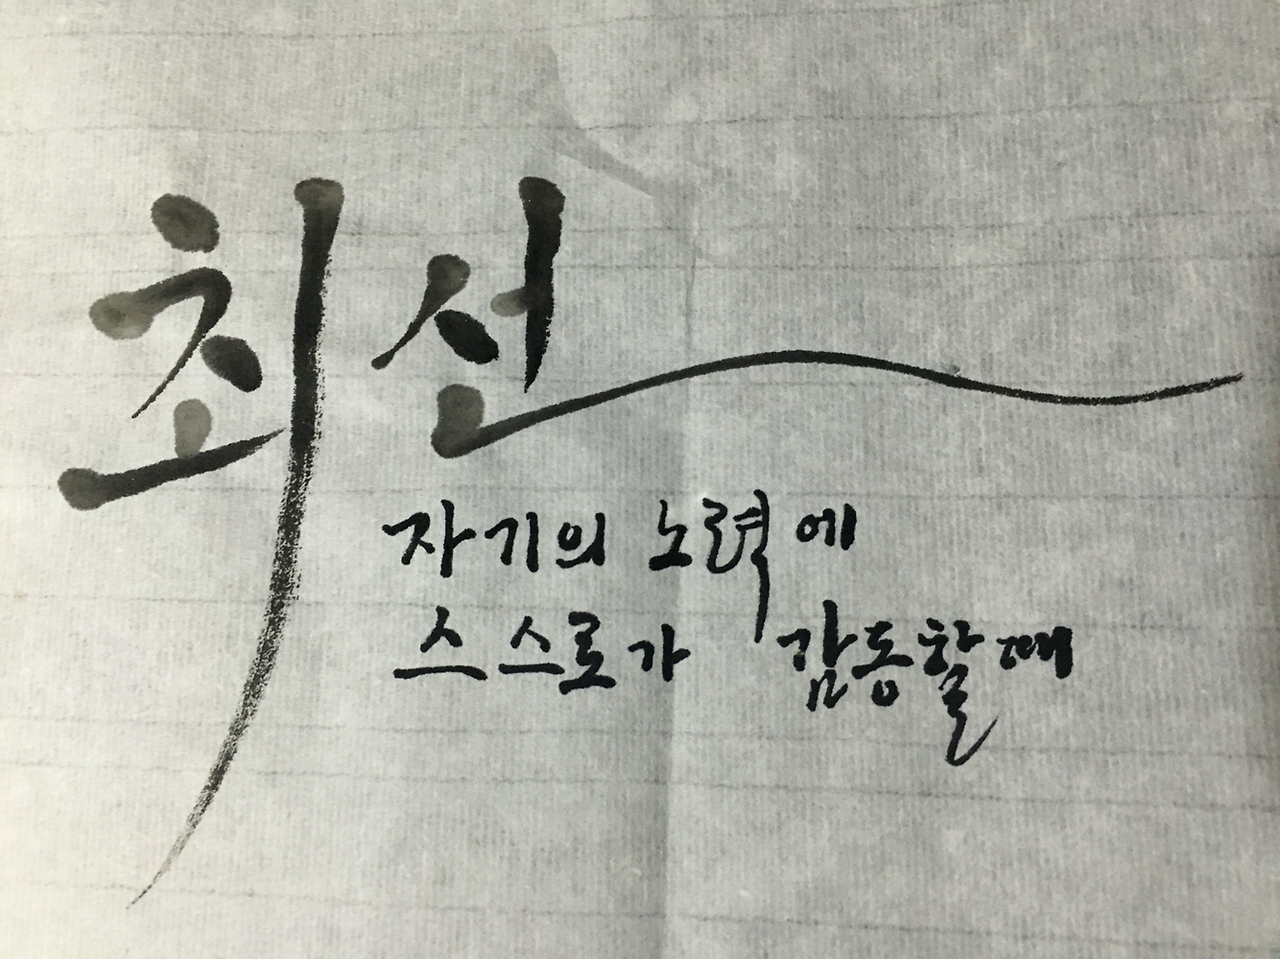 최선
자기의 노력에
스스로가 감동할때